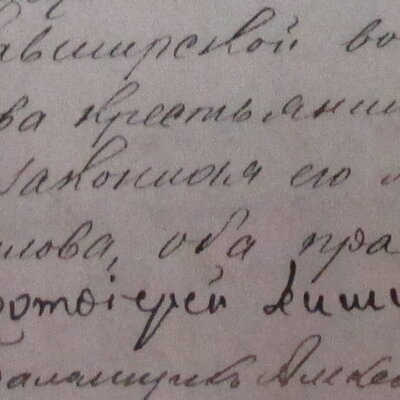 авширской во
ва крестьянин
законная его
лова, оба пра
ротоіерей Дими
аломщикъ Алекса